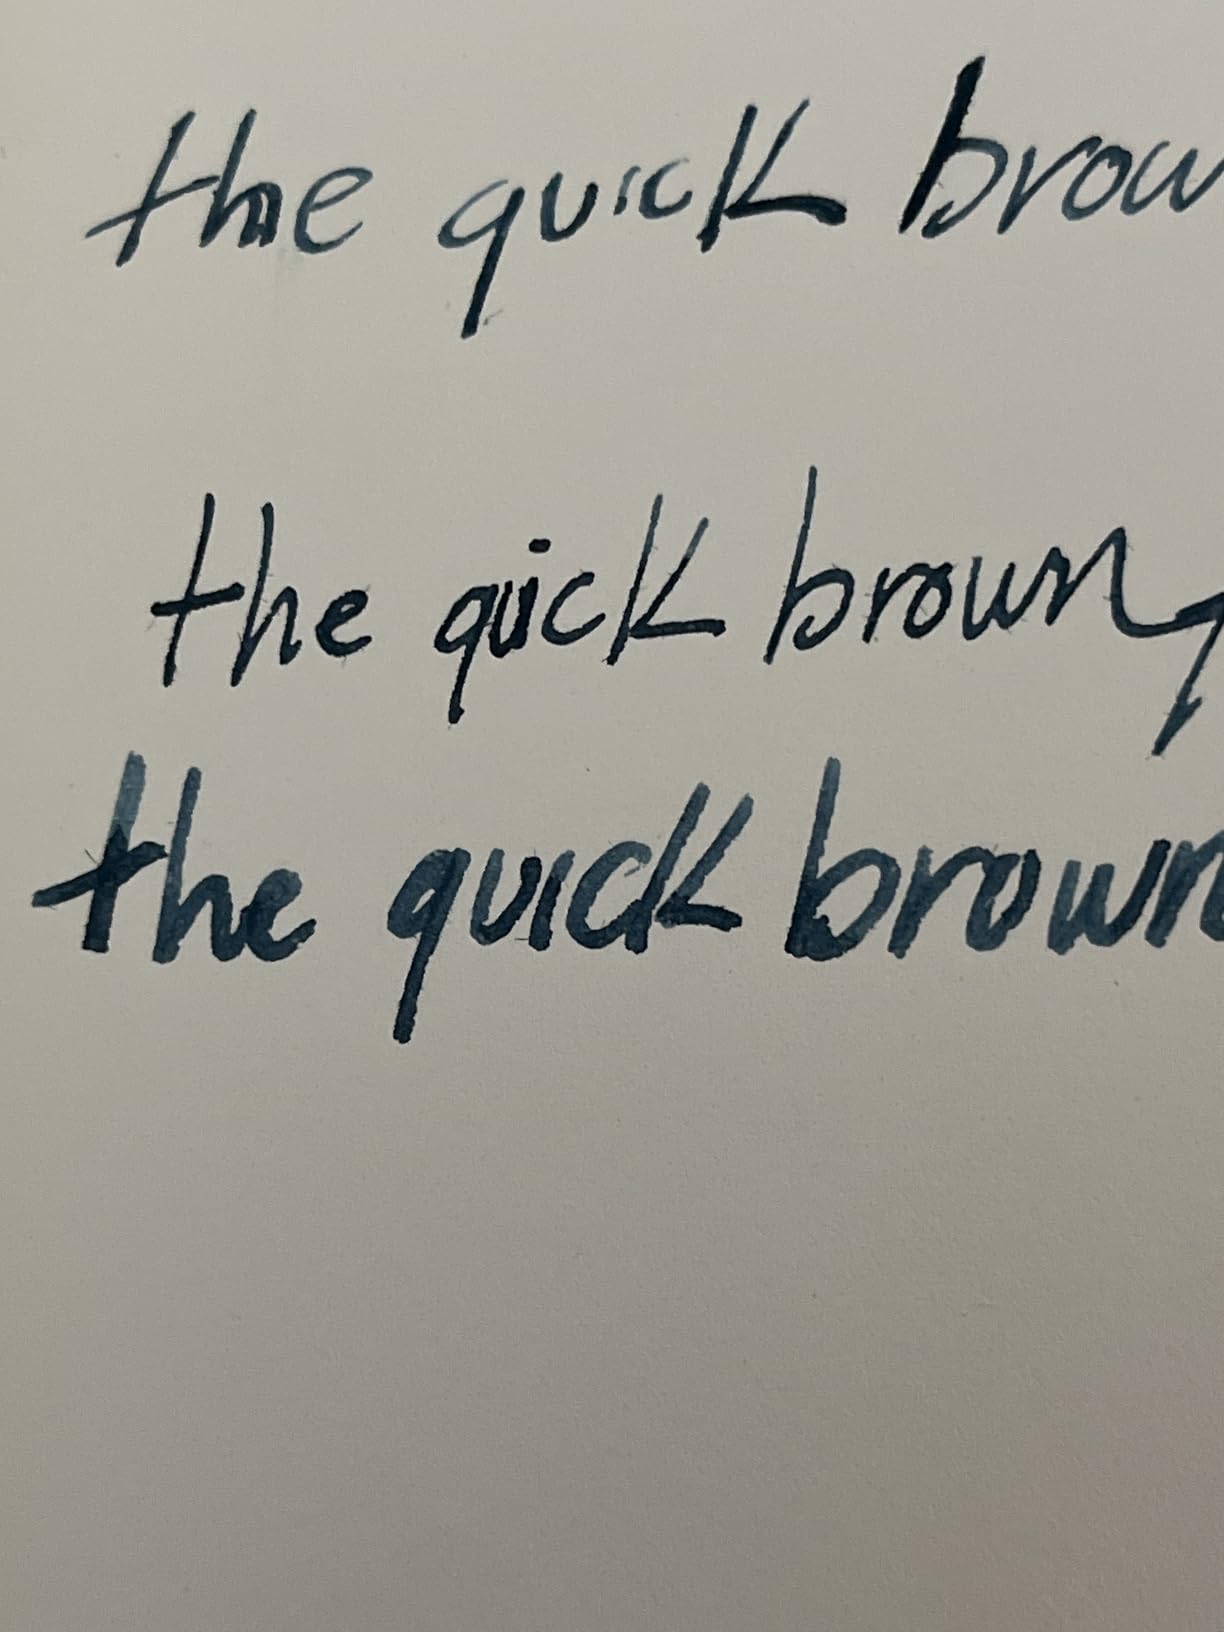 the quick brow
the quick brown
the quick brown